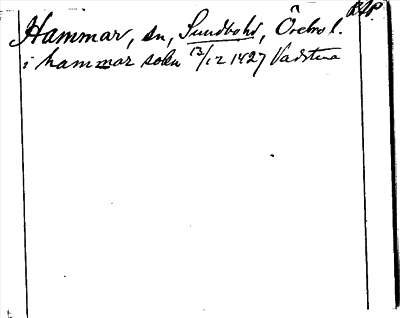 RAP.
Hammar, sn, Sundbohd, Örebro l.
i hammar sokn 13/12 1427 Vadstena